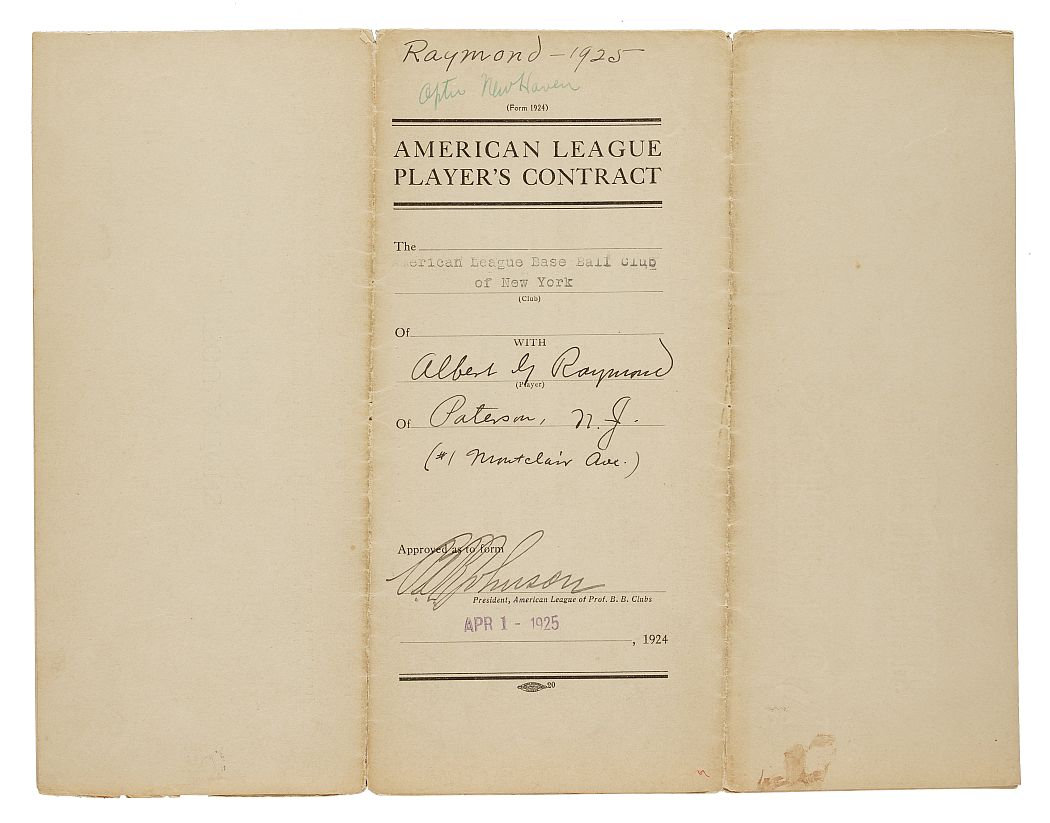 Raymond - 1925
Optn New Haven
(Form 1924)
AMERICAN LEAGUE
PLAYER'S CONTRACT
The
American League Base Ball Club
of New York
(Club)
Of
WITH
Albert G Raymond
(Player)
Of Paterson, N.J.
(#1 Montclair Ave.)
Approved as to form
B B Johnson
President, American League of Prof. B. B. Clubs
APR 1 - 1925
, 1924
20